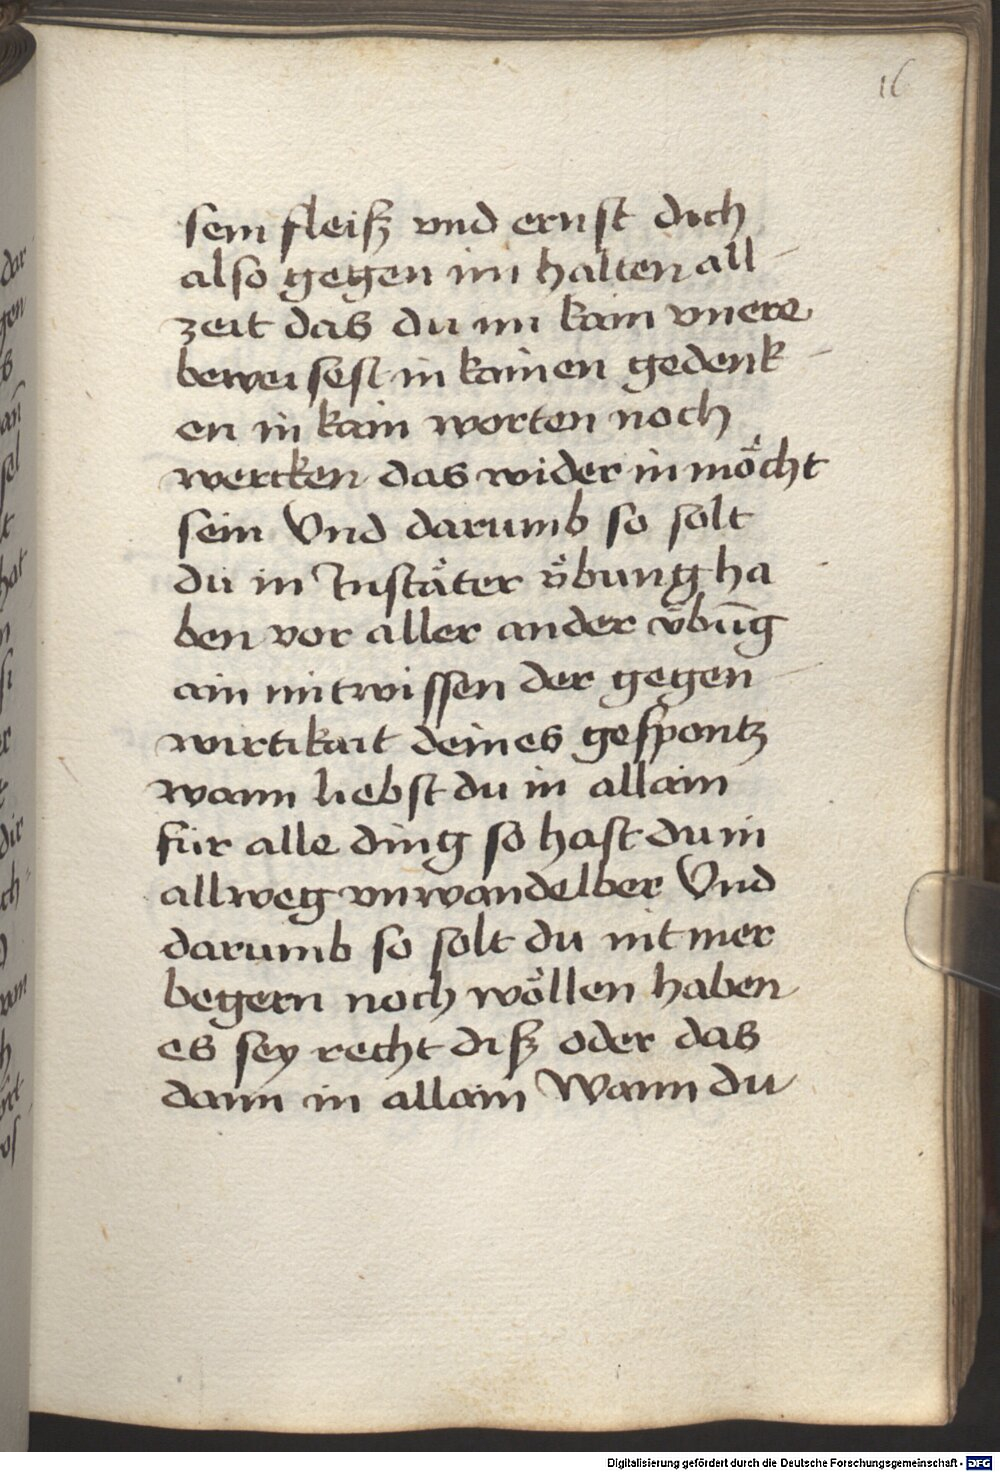 16
sein fleisz vnd ernst dich
also gegen im halten all
zeit das du im kain vnere
beweisest in kainen gedenk
en in kain worten noch
wercken das wider in möcht
sein Vnd darumb so solt
du in Instäter v̈bung ha
ben vor aller ander v̈būg
ain mitwissen der gegen
wirtikait deines gespontz
wann liebst du in allain
für alle ding so hast du in
allweg vnwandelber Vnd
darumb so solt du nit mer
begern noch wöllen haben
es sey recht disz oder das
dann in allain Wann du
Digitalisierung gefördert durch die Deutsche Forschungsgemeinschaft - DFG